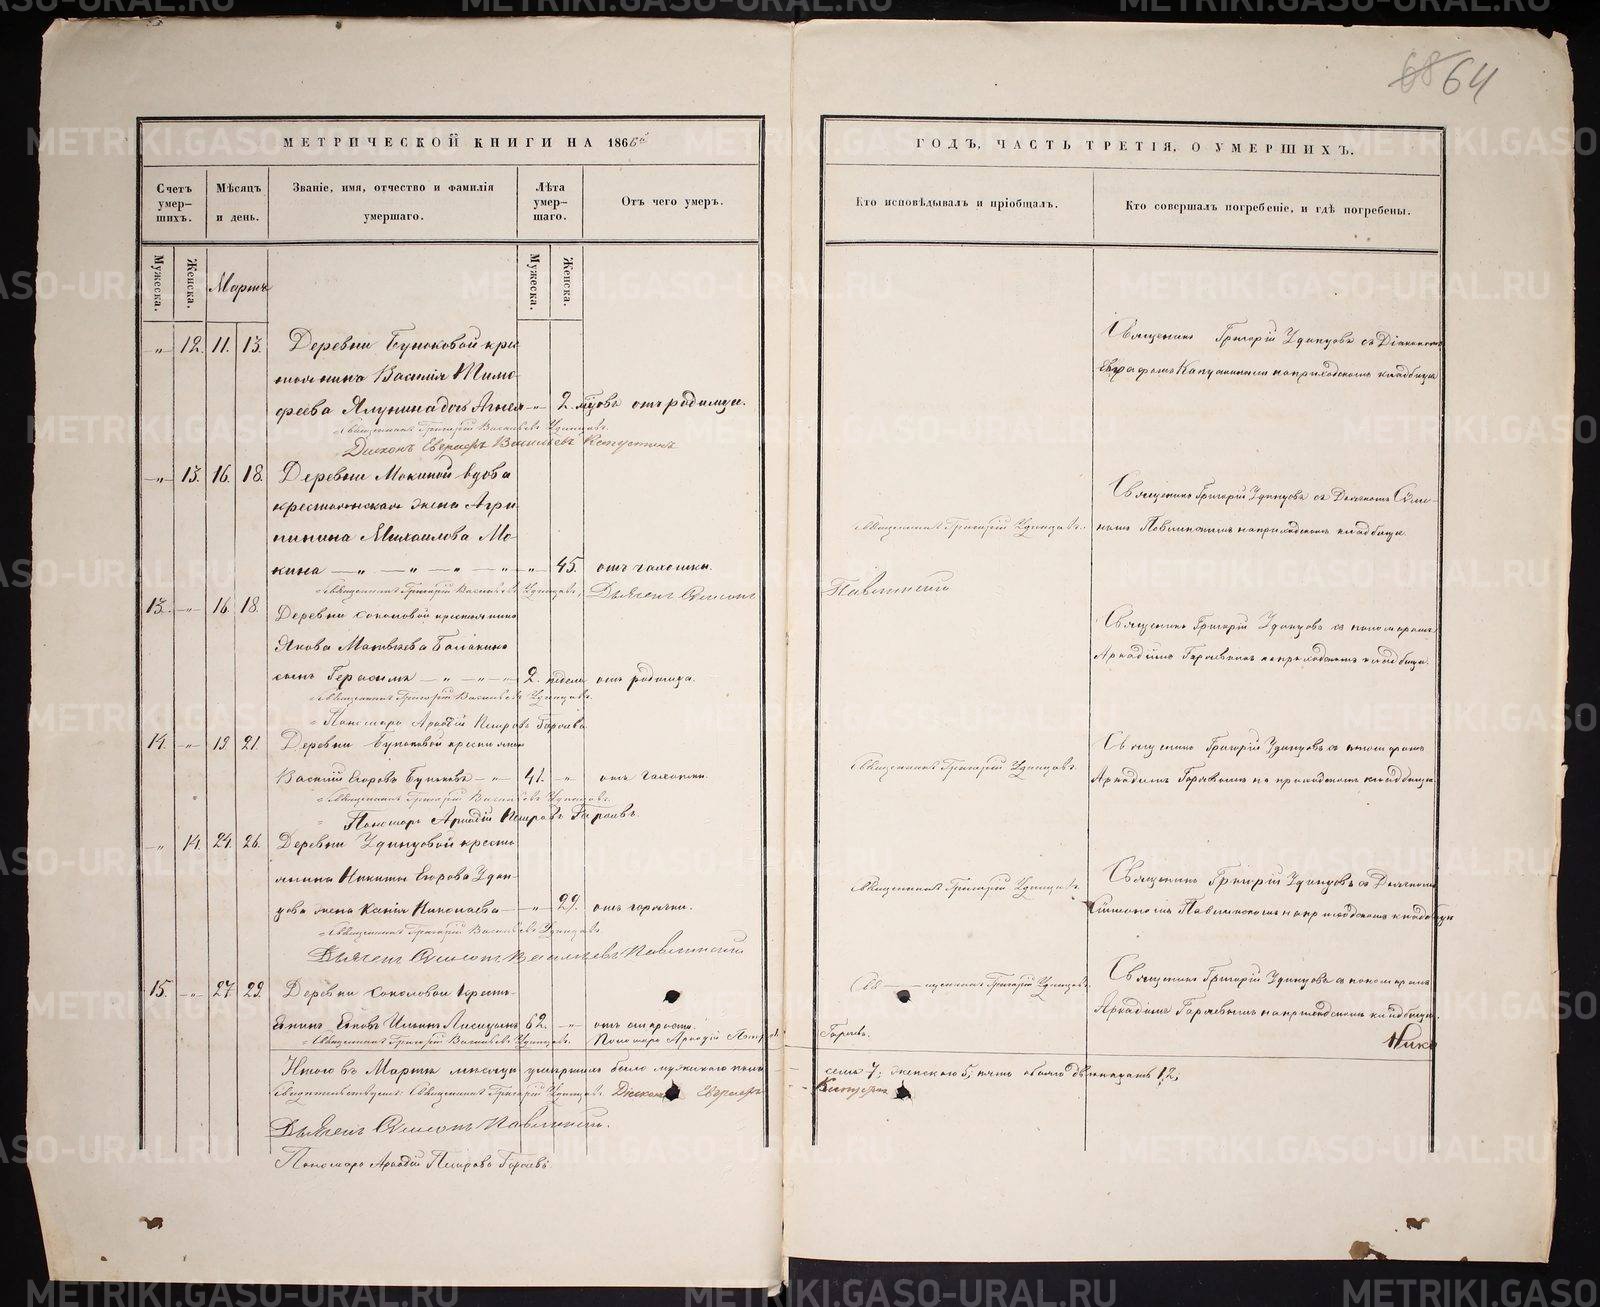 68 64
МЕТРИЧЕСКОЙ КНИГИ НА 1866й
ГОДЪ, ЧАСТЬ ТРЕТІЯ, О УМЕРШИХЪ.
Счетъ умер-шихъ.
Мѣсяцъ и день.
Званіе, имя, отчество и фамилія умершаго.
Лѣта умер-шаго.
Отъ чего умеръ.
Кто исповѣдывалъ и пріобщалъ.
Кто совершалъ погребеніе, и гдѣ погребены.
Мужеска.
Женска.
Мартъ
Мужеска.
Женска.
„ 12. 11. 13. Деревни Бунаковой крес
тьянина Василія Тимо-
феева Ялунина дочь „ 2. отъ родимца.
Священникъ Григорій Васильевъ Удинцовъ.
Діаконъ Васильевъ Капустинъ
Священникъ Григорій Удинцовъ съ Діакономъ
Капустинымъ на приходскомъ кладбищѣ
„ 13. 16. 18. Деревни Мокиной вдова
крестьянская жена Агри
пина Михаилова Мо-
кина — „ — „ — „ — „ 45. отъ чахотки.
Священникъ Григорій Васильевъ Удинцовъ, Дьячекъ Симеонъ
Павлинскій
Священникъ Григорій Удинцовъ.
Священникъ Григорій Удинцовъ съ Дьячкомъ Симе-
ономъ Павлинскимъ на приходскомъ кладбищѣ.
13. „ 16. 18. Деревни Соколовой крестьянина
Якова Матвѣева Балакина
сынъ Герасимъ — „ — „ — 2. недѣли отъ родимца.
Священникъ Григорій Васильевъ Удинцовъ.
Пономарь Аркадій Петровъ Горяевъ
Священникъ Григорій Удинцовъ съ пономаремъ
Аркадіемъ Горяевымъ на приходскомъ кладбищѣ.
14. „ 19. 21. Деревни Бунаковой крестьянинъ
Василій Егоровъ Бунаковъ — „ 41. „ отъ чахотки.
Священникъ Григорій Васильевъ Удинцовъ.
Пономарь Аркадій Петровъ Горяевъ.
Священникъ Григорій Удинцовъ.
Священникъ Григорій Удинцовъ съ пономаремъ
Аркадіемъ Горяевымъ на приходскомъ кладбищѣ.
„ 14. 24. 26. Деревни Удинцовой кресть
янина Никиты Егорова Удин-
цова жена Ксенія Николаева — „ 29. отъ горячки.
Священникъ Григорій Васильевъ Удинцовъ.
Дьячекъ Симеонъ Васильевъ Павлинскій
Священникъ Григорій Удинцовъ.
Священникъ Григорій Удинцовъ съ Дьячкомъ
Симеономъ Павлинскимъ на приходскомъ кладбищѣ
15. „ 27. 29. Деревни Соколовой Кресть-
янинъ Ильинъ Лисицынъ 62. „ отъ старости.
Священникъ Григорій Васильевъ Удинцовъ. Пономарь Аркадій Петровъ
Горяевъ.
Свя — щенникъ Григорій Удинцовъ.
Священникъ Григорій Удинцовъ съ пономаремъ
Аркадіемъ Горяевымъ на приходскомъ кладбищѣ.
Нико
Итого въ Мартѣ мѣсяцѣ умершихъ было мужескаго пола семь 7; женскаго 5; пять обоего двенадцать 12;
Свидѣтельствуютъ: Священникъ Григорій Удинцовъ Діаконъ Капустинъ
Дьячекъ Симеонъ Павлинскій.
Пономарь Аркадій Петровъ Горяевъ.
METRIKI.GASO-URAL.RU